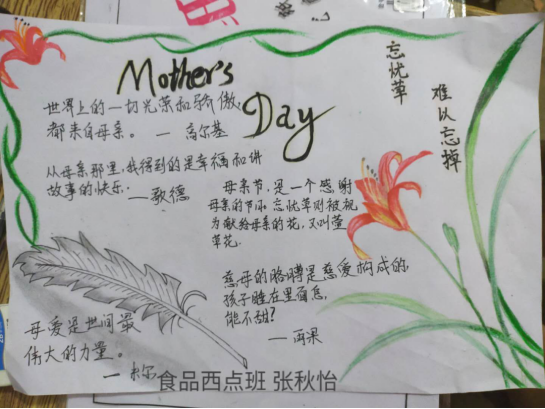 Mother's
Day
世界上的一切光荣和骄傲,
都来自母亲。 — 高尔基
从母亲那里,我得到的是幸福和讲
故事的快乐。 — 歌德
母亲节,是一个感谢
母亲的节日 忘忧草则被视
为献给母亲的花,又叫萱
草花.
慈母的胳膊是慈爱构成的,
孩子睡在里面怎
能不甜?
— 雨果
母爱是世间最
伟大的力量。
— 米尔
忘忧草
难以忘掉
食品西点班 张秋怡